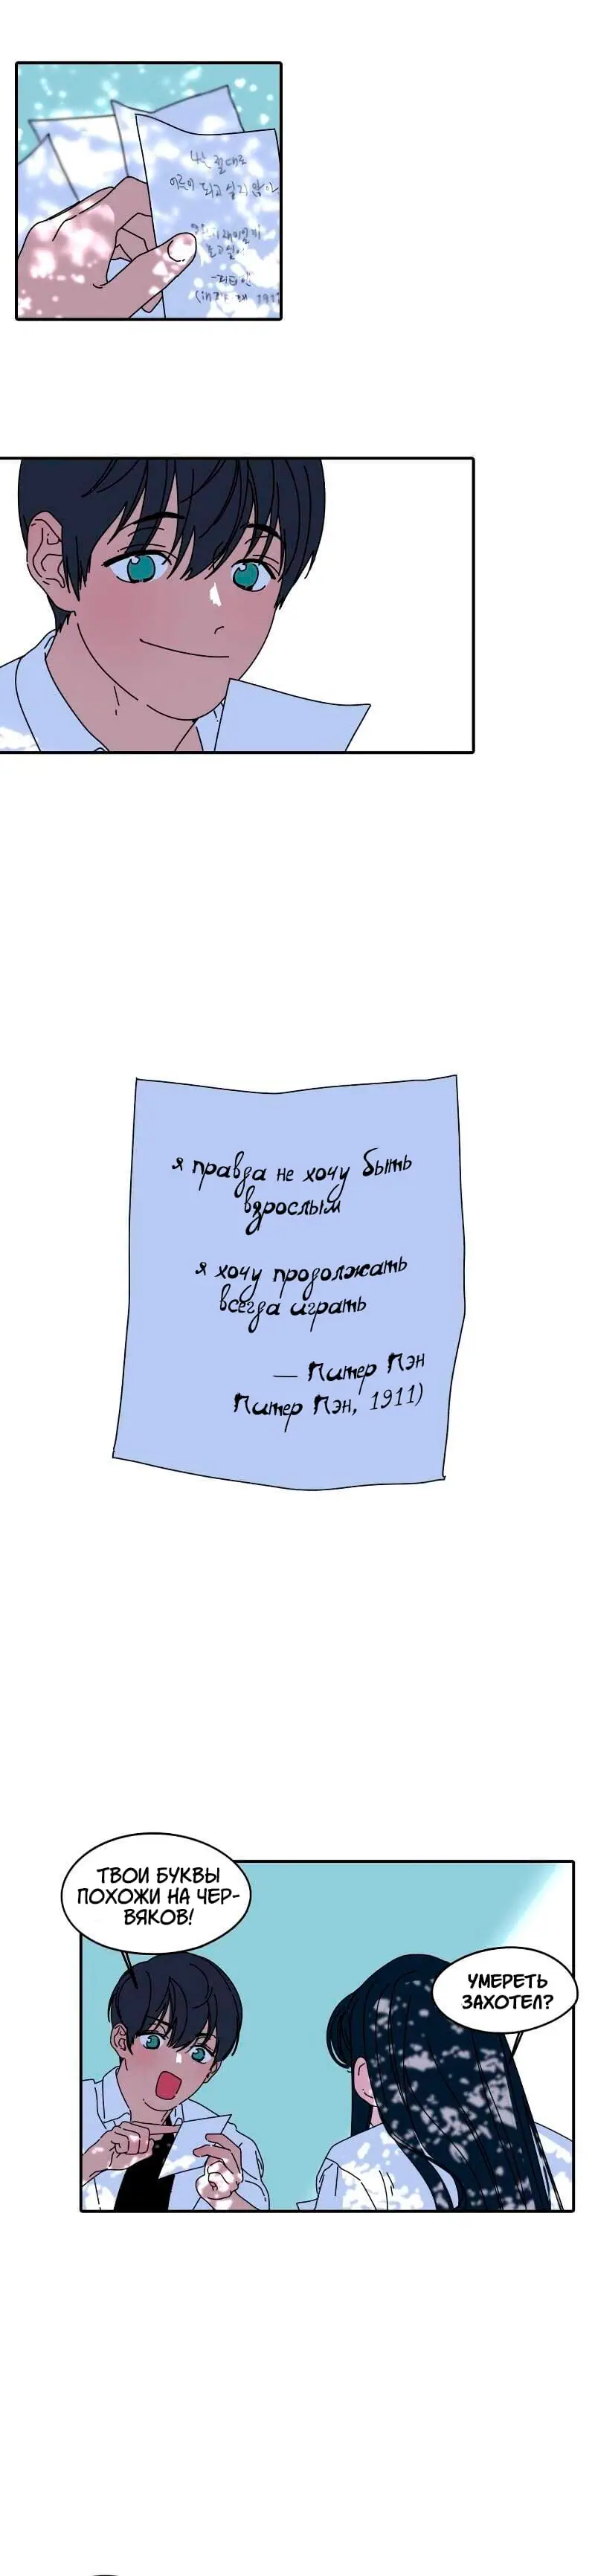 나는 절대로
어른이 되고 싶지 않아
놀고싶어
-피터팬
я правда не хочу быть
взрослым
я хочу продолжать
всегда играть
— Питер Пэн
Питер Пэн, 1911)
ТВОИ БУКВЫ
ПОХОЖИ НА ЧЕР-
ВЯКОВ!
УМЕРЕТЬ
ЗАХОТЕЛ?